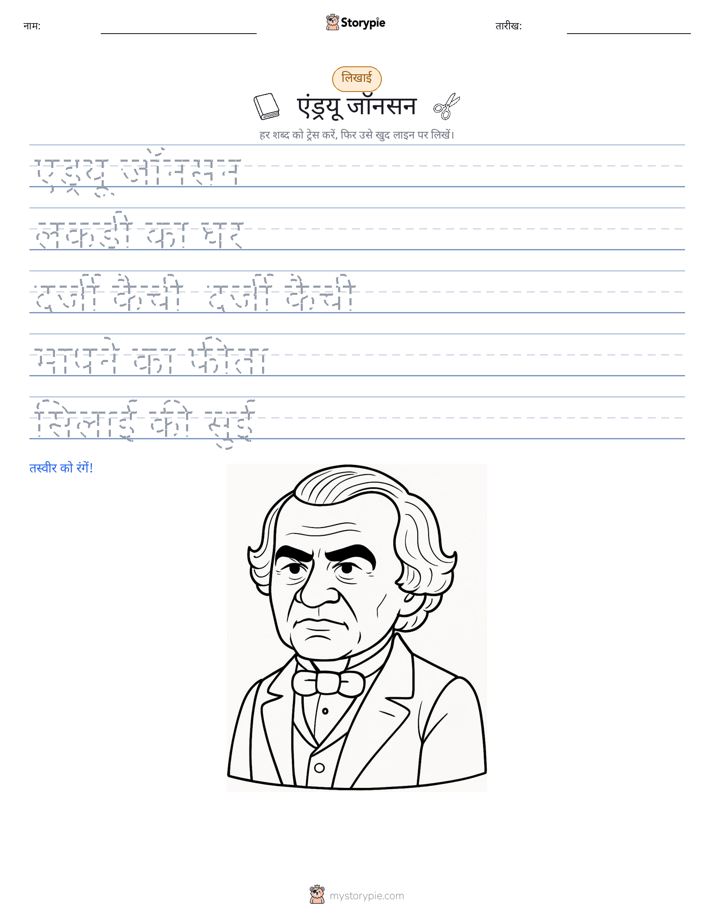 नाम:
Storypie
तारीख:
लिखाई
एंड्रयू जॉनसन
हर शब्द को ट्रेस करें, फिर उसे खुद लाइन पर लिखें।
एंड्रयू जॉनसन
लकड़ी का घर
दर्जी कैंची दर्जी कैंची
मापने का फीता
सिलाई की सुई
तस्वीर को रंगें!
mystorypie.com